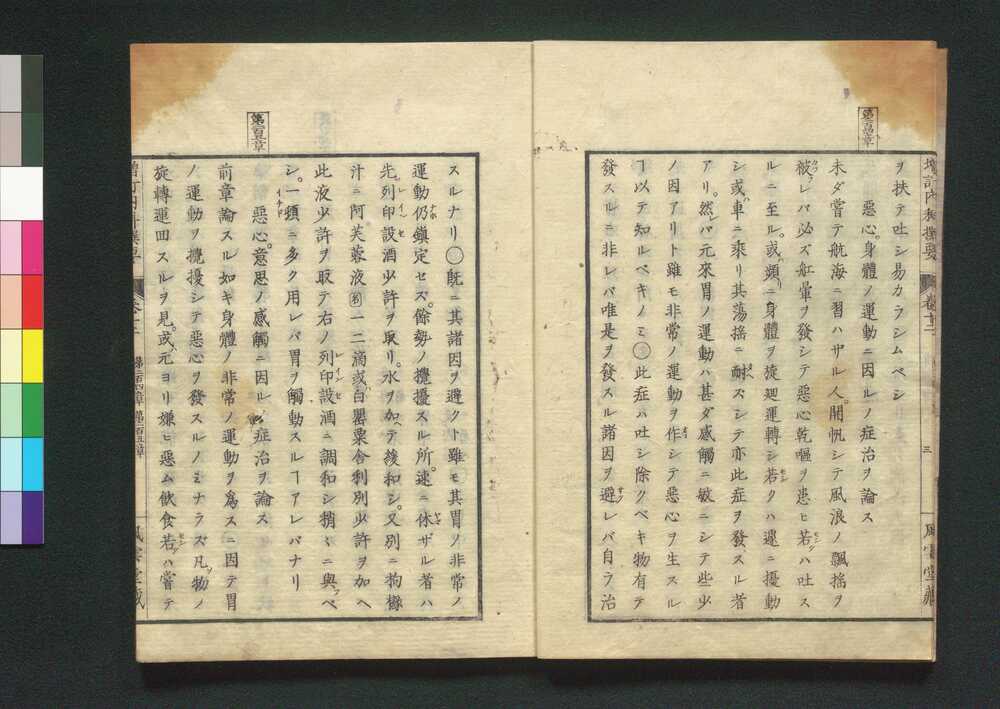 增訂内科撰要 卷十二
三
風雲堂藏
第二百四章
ヲ扶テ吐シ易カラシムベシ
惡心。身體ノ運動ニ因ルノ症治ヲ論ス
未ダ嘗テ航海ニ習ハザル人。開帆シテ風浪ノ飄搖ヲ
被レバ必ズ舩暈ヲ發シテ惡心乾嘔ヲ患ヒ若ハ吐ス
ルニ至ル。或頻ニ身體ヲ旋廻運轉シ若クハ遽ニ擾動
シ或車ニ乘リ其蕩搖ニ耐ズシテ亦此症ヲ發スル者
アリ。然レバ元來胃ノ運動ハ甚ダ感觸ニ敏ニシテ些少
ノ因アリト雖モ非常ノ運動ヲ作シテ惡心ヲ生スル
ヿ以テ知ルベキノミ〇此症ハ吐シ除クベキ物有テ
發スルニ非レバ唯是ヲ發スル諸因ヲ避レバ自ラ治
スルナリ〇既ニ其諸因ヲ避クト雖モ其胃ノ非常ノ
運動仍鎭定セズ。餘勢ノ攪擾スル所。速ニ休ザル者ハ
先列印設酒少許ヲ取リ。水ヲ加ヘテ緩和シ。又別ニ拘櫞
汁ニ阿芙蓉液一二滴或白罌粟舎利別少許ヲ加ヘ
此液少許ヲ取テ右ノ列印設酒ニ調和シ稍々ニ與ベ
シ。一頓ニ多ク用レバ胃ヲ觸動スルヿアレバナリ
第二百五章
惡心。意思ノ感觸ニ因ルノ症治ヲ論ス
前章論スル如キ身體ノ非常ノ運動ヲ爲スニ因テ胃
ノ運動ヲ攪擾シテ惡心ヲ發スルノミナラズ凡物ノ
旋轉運囬スルヲ見。或元ヨリ嫌ヒ惡ム飮食若ハ嘗テ
增訂内科撰要 卷十二
第二百四章 第二百五章
風雲堂藏